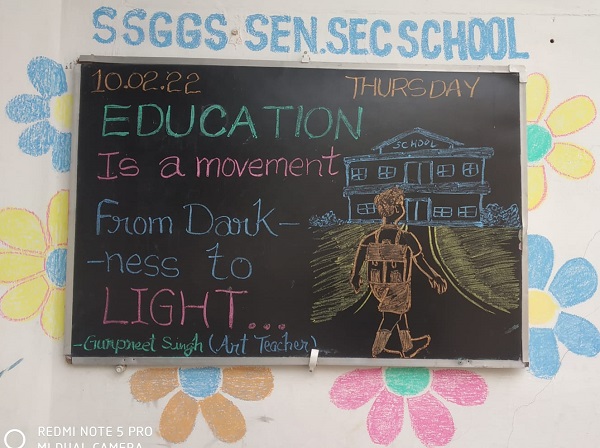 SSGGS SEN.SEC SCHOOL
10.02.22 THURSDAY
EDUCATION
Is a movement
SCHOOL
From Dark-
-ness to
LIGHT...
-Gurpreet Singh (Art Teacher)
REDMI NOTE 5 PRO
MI DUAL CAMERA